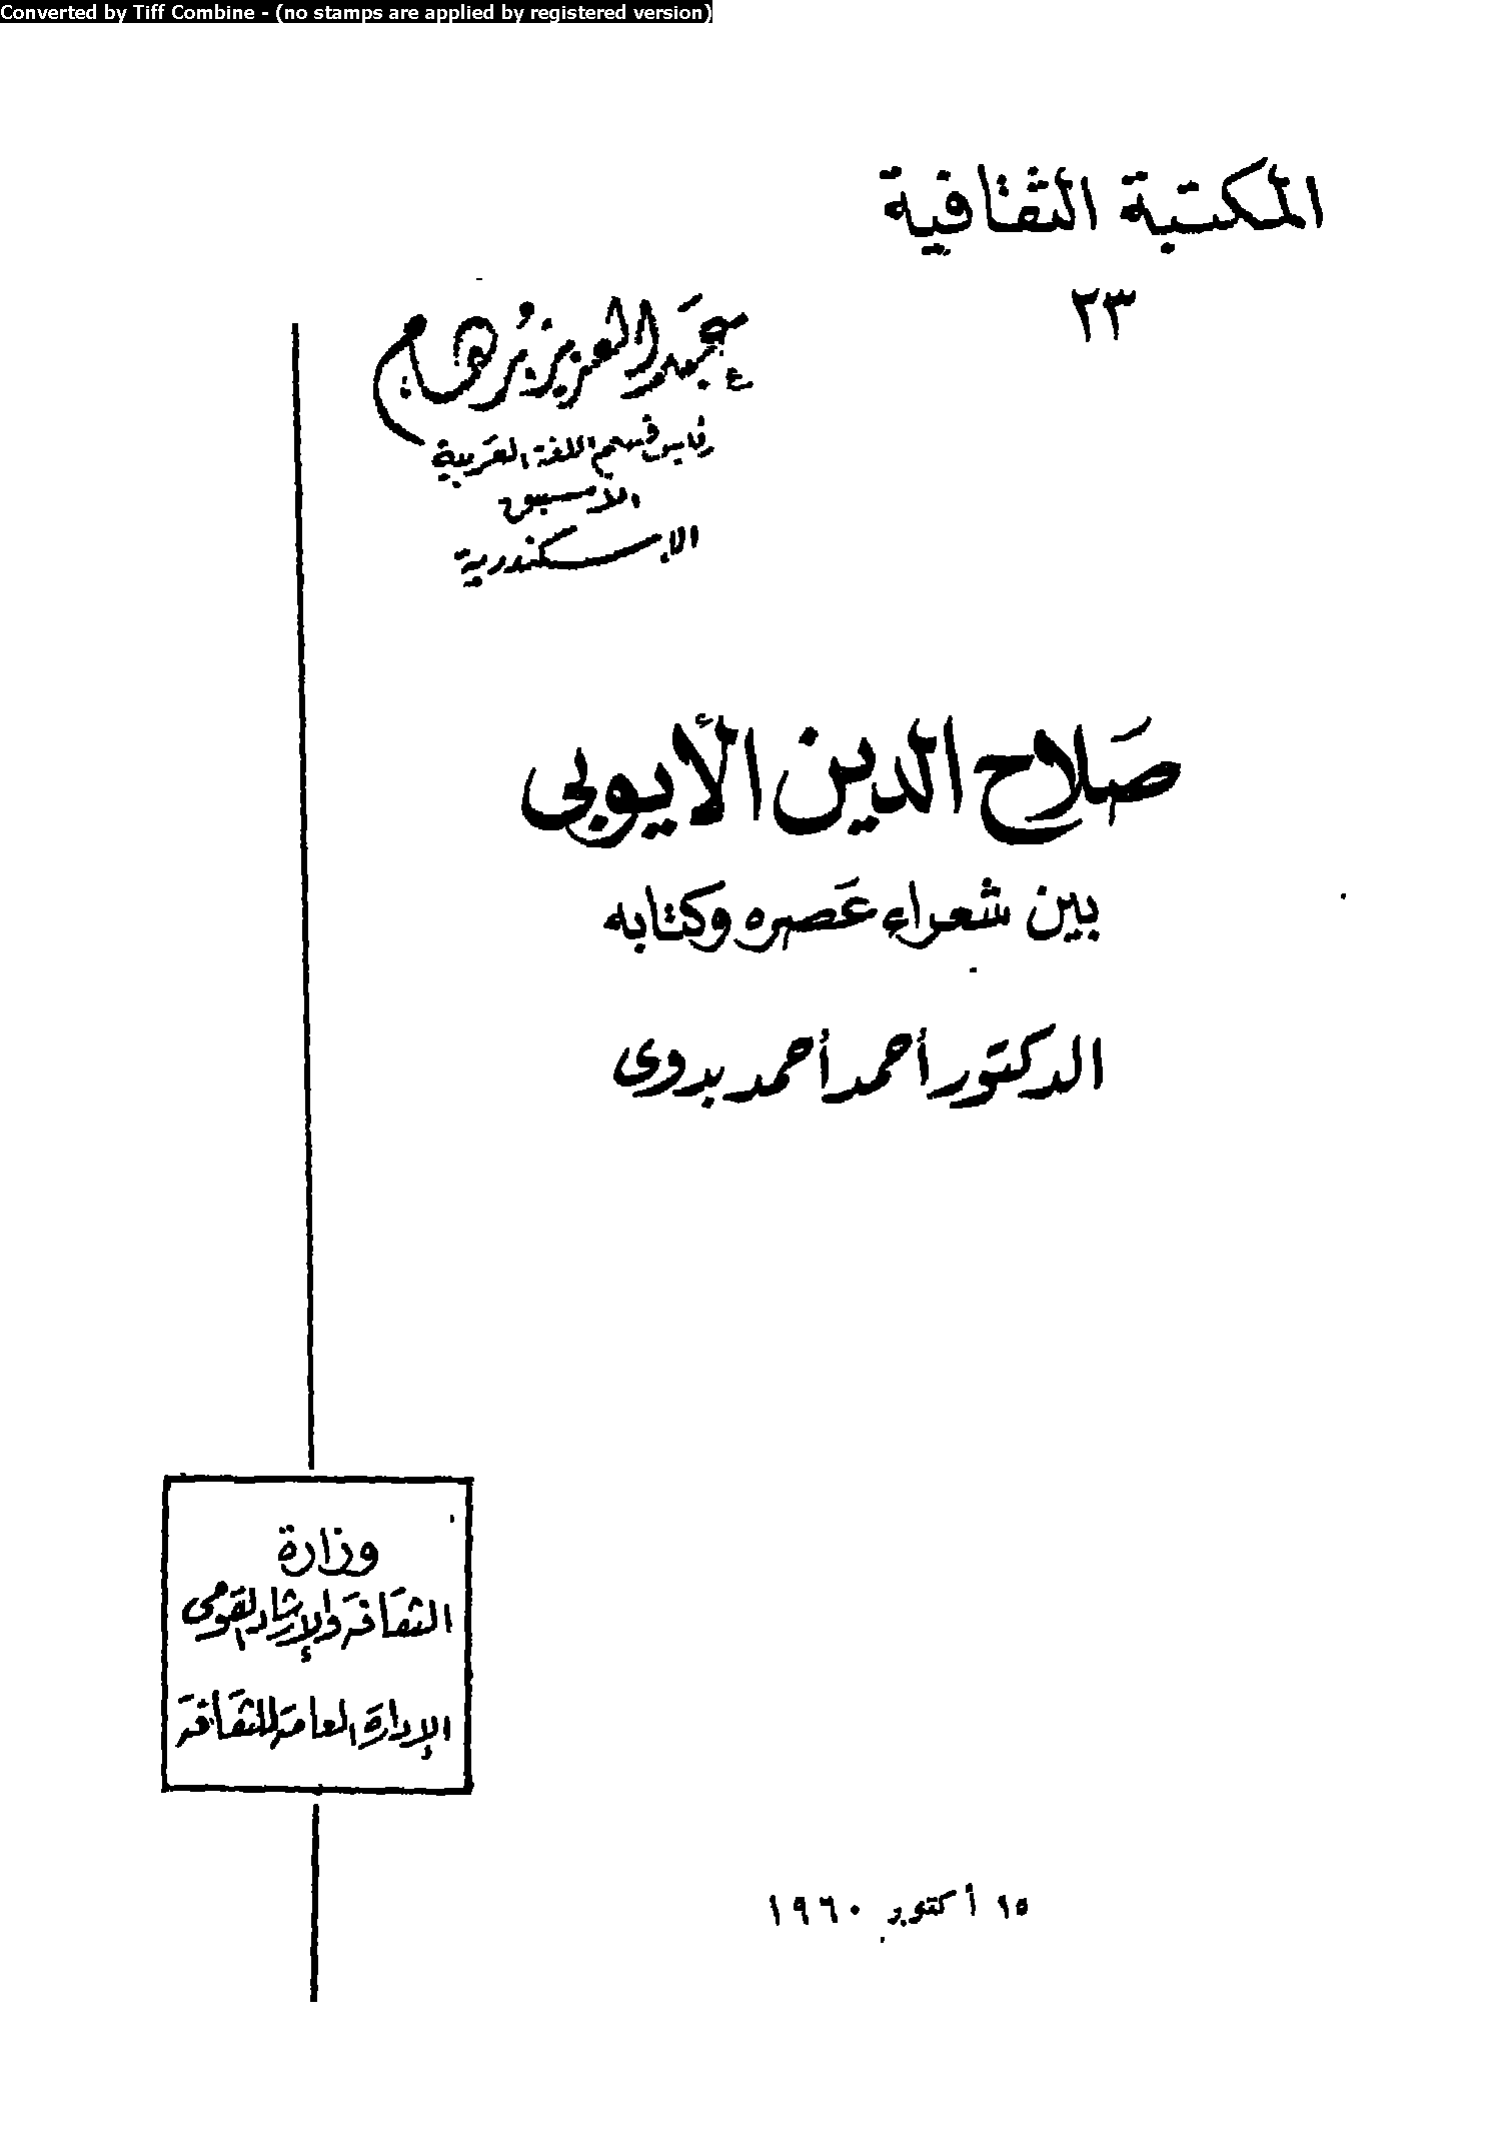 Converted by Tiff Combine - (no stamps are applied by registered version)
المكتبة الثقافية
٢٣
عبد العزيز برهام
رئيس قسم اللغة العربية
الأسبق
الإسكندرية
صلاح الدين الأيوبى
بين شعراء عصره وكتابه
الدكتور أحمد أحمد بدوى
وزارة
الثقافة والإرشاد القومى
الإدارة العامة للثقافة
١٥ أكتوبر ١٩٦٠